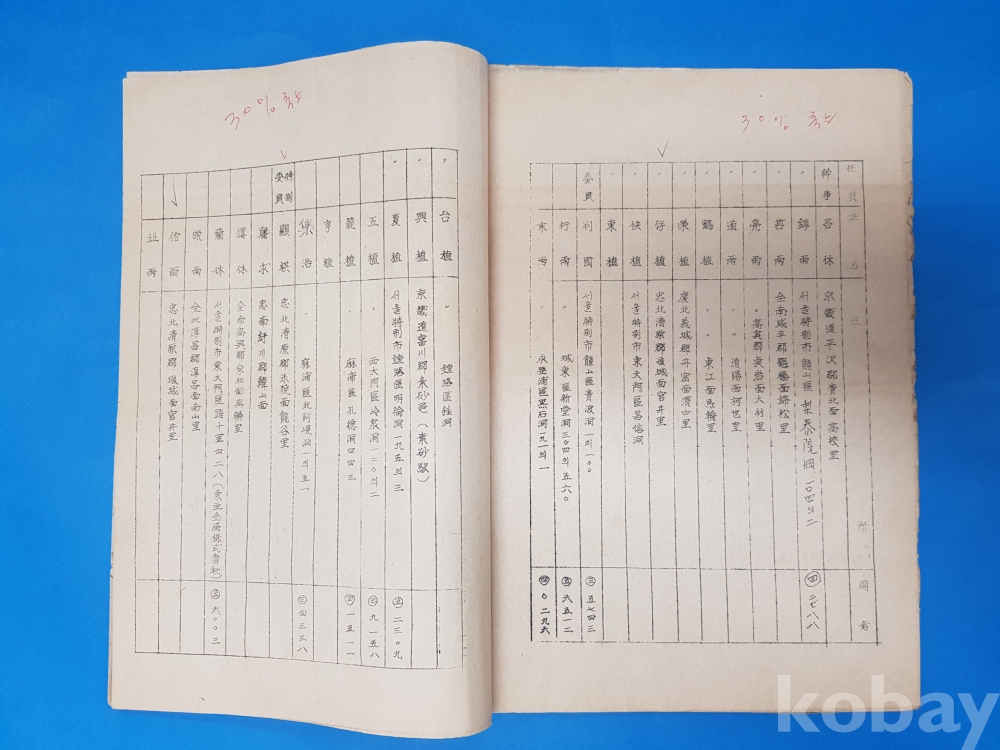 30% 축소
任員 姓名 住所 備考
幹事 昌休 京畿道平沢郡青北面高棧里
〃 錞雨 서울特別市龍山區梨泰院洞一〇四의二 ㊃二七八八
〃 哲雨 全南咸平郡鶴橋面錦松里
〃 亮雨 〃 高興郡炭岩面大村里
〃 道雨 〃 道陽面柯也里
〃 鶴植 〃 東江面馬輪里
〃 榮植 慶北義城郡丹密面渭古里
〃 仔植 忠北清原郡琅城面官井里
〃 快植 서울特別市東大門區昌信洞
〃 東植
委員 利國 서울特別市龍山區青波洞一의一〇〇 ㊂五七四三
〃 衍雨 〃 城東區新堂洞三〇四의五六〇 ㊄六五一二
〃 永雨 〃 永登浦區黑石洞一九一의一 ㊃〇二九六
30% 축소
〃 台植 〃 鍾路區桂洞
〃 興植 京畿道富川郡素砂邑(素砂駅)
〃 夏植 서울特別市鍾路區明倫洞一九五의三 ㊄二三〇九
五植 〃 西大門區冷泉洞一三〇의二 ㊂九一五八
範植 〃 麻浦區孔德洞四四三 ㊁一五一一
亨植
集浩 〃 麻浦區北阿現洞一의五一 ㊂四三三八
特別委員 顯祺 忠北清原郡米院面龍谷里
馨求 忠南舒川郡韓山面
爆休 全南高興郡東江面馬輪里
蘭休 서울特別市東大門區踏十里四二八(東亞金属株式會社) ㊄六〇〇三
晥雨 全北淳昌郡淳昌面南山里
佑雨 忠北清原郡琅城面官井里
祉雨
kobay